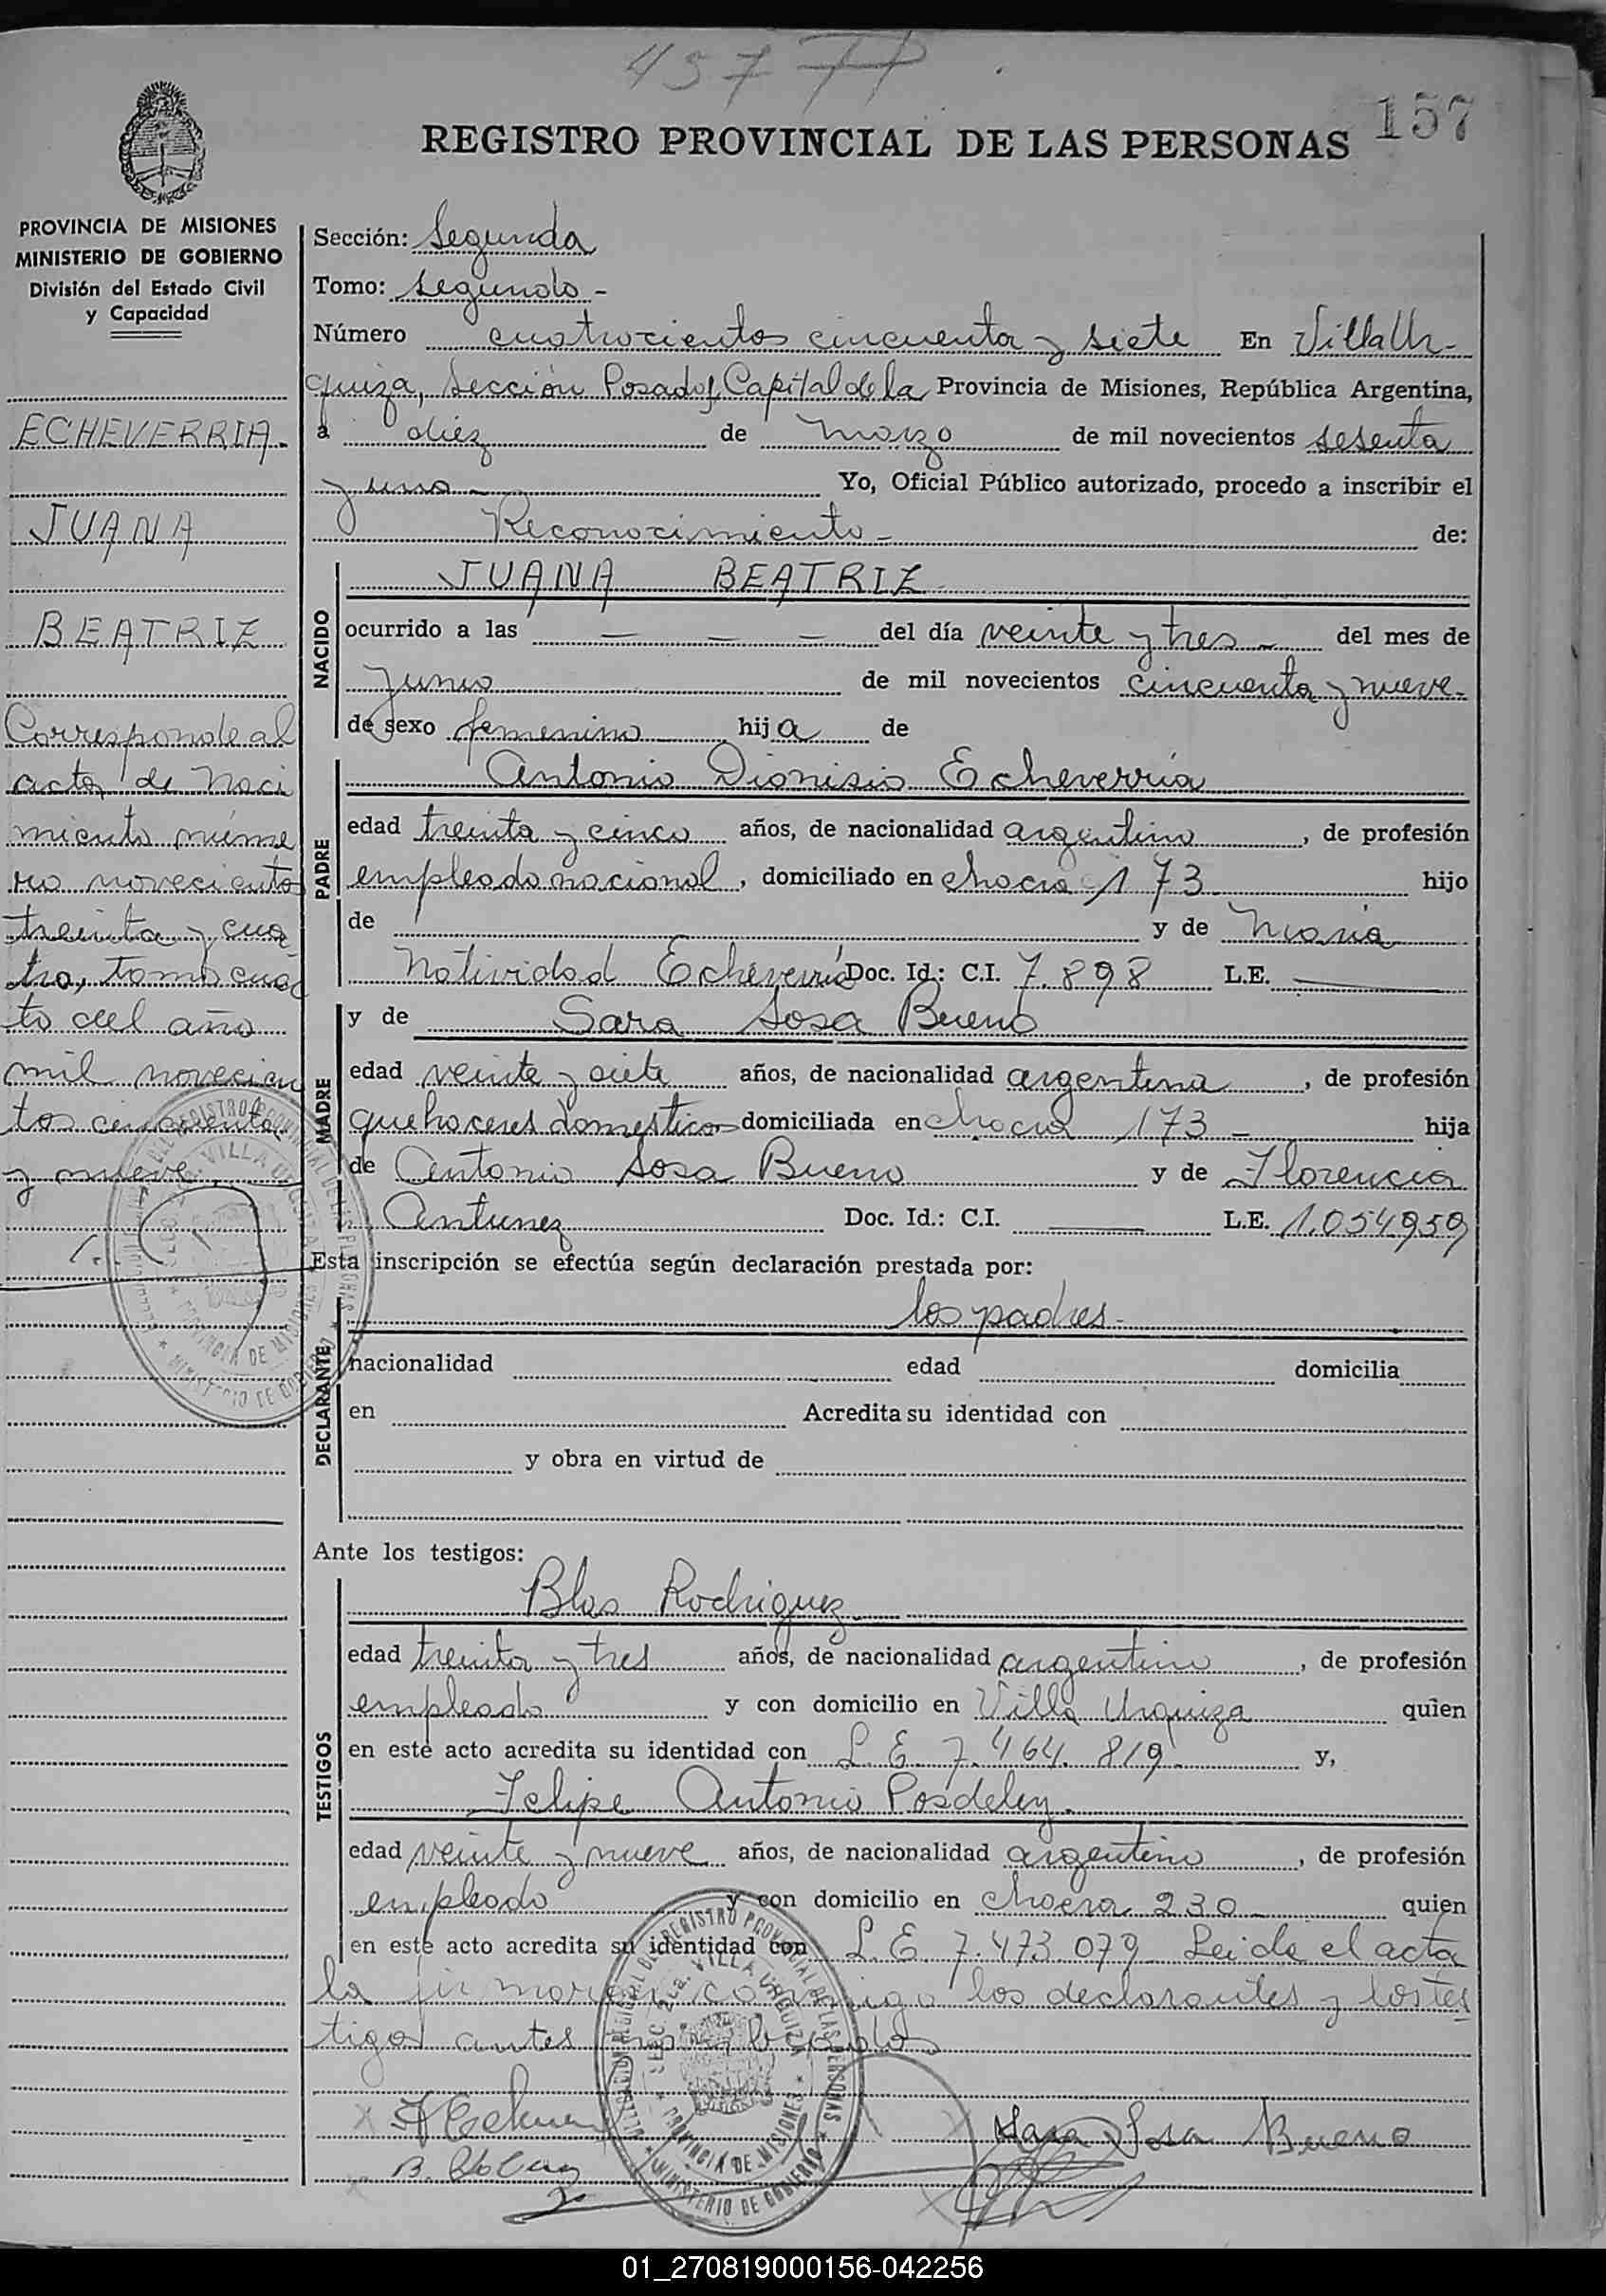 457
157
REGISTRO PROVINCIAL DE LAS PERSONAS
PROVINCIA DE MISIONES
MINISTERIO DE GOBIERNO
División del Estado Civil
y Capacidad
ECHEVERRIA-
JUANA
BEATRIZ
Corresponde al
acta de Naci
miento núme
ro novecientos
treinta y cua
tro, tomo cuar
to del año
mil novecien
tos cincuenta
y nueve
Sección: Segunda
Tomo: segundo -
Número cuatrocientos cincuenta y siete En Villa Ur-
quiza, Sección Posadas, Capital de la Provincia de Misiones, República Argentina,
a diez de Marzo de mil novecientos sesenta
y uno - Yo, Oficial Público autorizado, procedo a inscribir el
Reconocimiento - de:
NACIDO
JUANA BEATRIZ
ocurrido a las — — — del día veinte y tres - del mes de
Junio de mil novecientos cincuenta y nueve-
de sexo femenino hija de
PADRE
Antonio Dionisio Echeverría
edad treinta y cinco años, de nacionalidad argentino, de profesión
empleado nacional, domiciliado en chacra 173 hijo
de y de María
Natividad Echeverría Doc. Id.: C.I. 7.898 L.E. —
MADRE
y de Sara Sosa Bueno
edad veinte y siete años, de nacionalidad argentina, de profesión
quehaceres domesticos domiciliada en chacra 173 - hija
de Antonio Sosa Bueno y de Florencia
Antunez Doc. Id.: C.I. — L.E. 1.054.959
Esta inscripción se efectúa según declaración prestada por:
DECLARANTE
los padres-
nacionalidad edad domicilia
en Acredita su identidad con
y obra en virtud de
Ante los testigos:
TESTIGOS
Blas Rodriguez
edad treinta y tres años, de nacionalidad argentino, de profesión
empleado y con domicilio en Villa Urquiza quien
en este acto acredita su identidad con L.E. 7.464.819 y,
Felipe Antonio Posdeley.
edad veinte y nueve años, de nacionalidad argentino, de profesión
empleado y con domicilio en chacra 230 - quien
en este acto acredita su identidad con L.E. 7.473.079 Leida el acta
la firman conmigo los declarantes y los tes
tigos antes
Sara Sosa Bueno
01_270819000156-042256